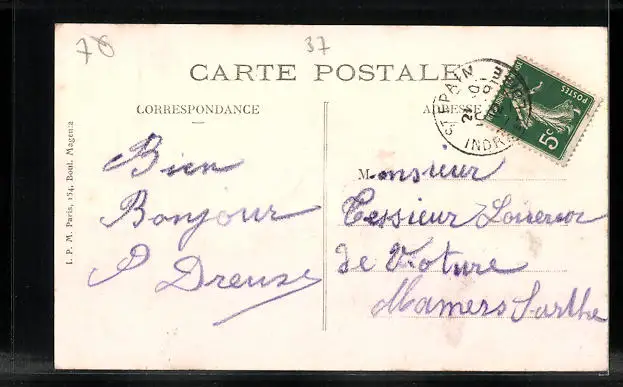 76
37
CARTE POSTALE
CORRESPONDANCE
ADRESSE
ST EPAIN
INDRE
POSTES
5c
I. P. M. Paris, 154, Boul. Magenta
Bien
Bonjour
P Dreuse
Monsieur
Tessieur Loueur
de Voiture
Mamers Sarthe